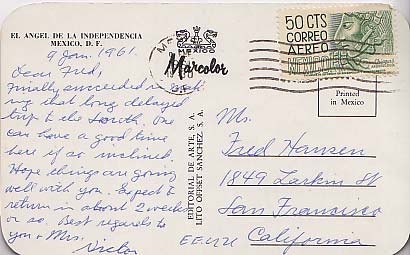 EL ANGEL DE LA INDEPENDENCIA
MEXICO, D. F.
9 Jan. 1961.
Dear Fred,
Finally succeeded in
ing that long delayed
trip to the South. One
can have a good time
here if so inclined.
Hope things are going
well with you. Expect to
return in about 2 weeks
or so. Best regards to
you & Mrs.
Victor
MEXICO
Mexcolor
EDITORIAL DE ARTE, S. A.
LITO OFFSET SANCHEZ, S. A.
50 CTS
CORREO
AEREO
MEXICO
Printed
in Mexico
Mr.
Fred Hansen
1849 Larkin St
San Francisco
California
EEUU